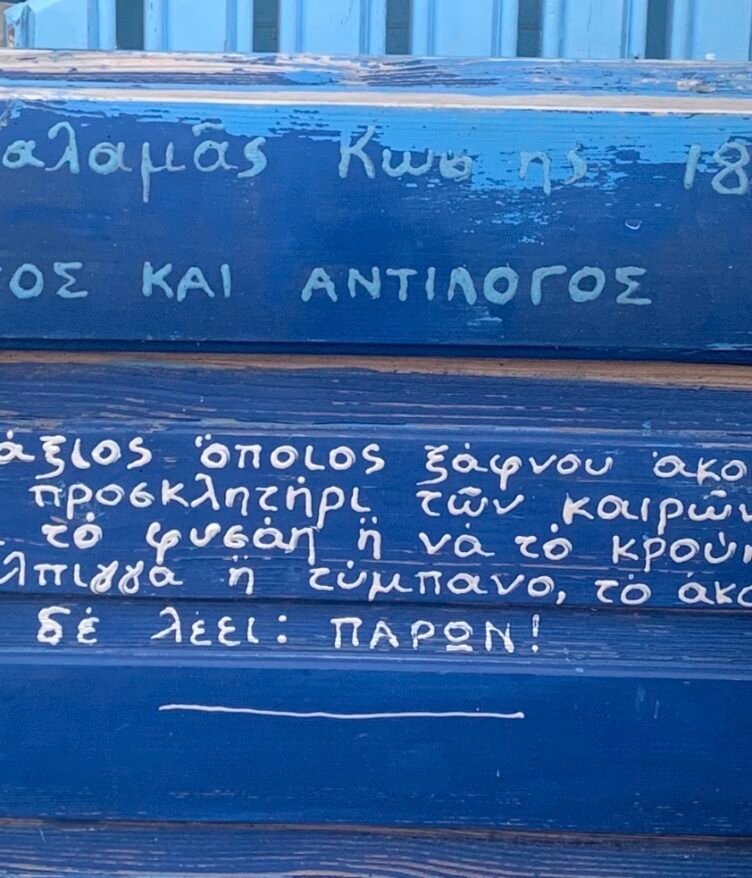 αλαμᾶς Κωσ ης 18
ΟΣ ΚΑΙ ΑΝΤΙΛΟΓΟΣ
άξιος ὅποιος ξάφνου ἀκο
προσκλητήρι τῶν καιρῶν
τό φυσάη ἤ νά τό κρούη
λπιγγα ἤ τύμπανο, τό ἀκο
δέ λέει: ΠΑΡΩΝ!